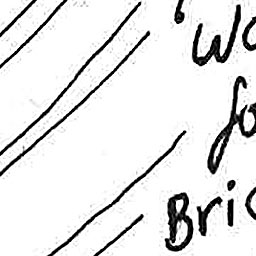 wo
fo
Bric